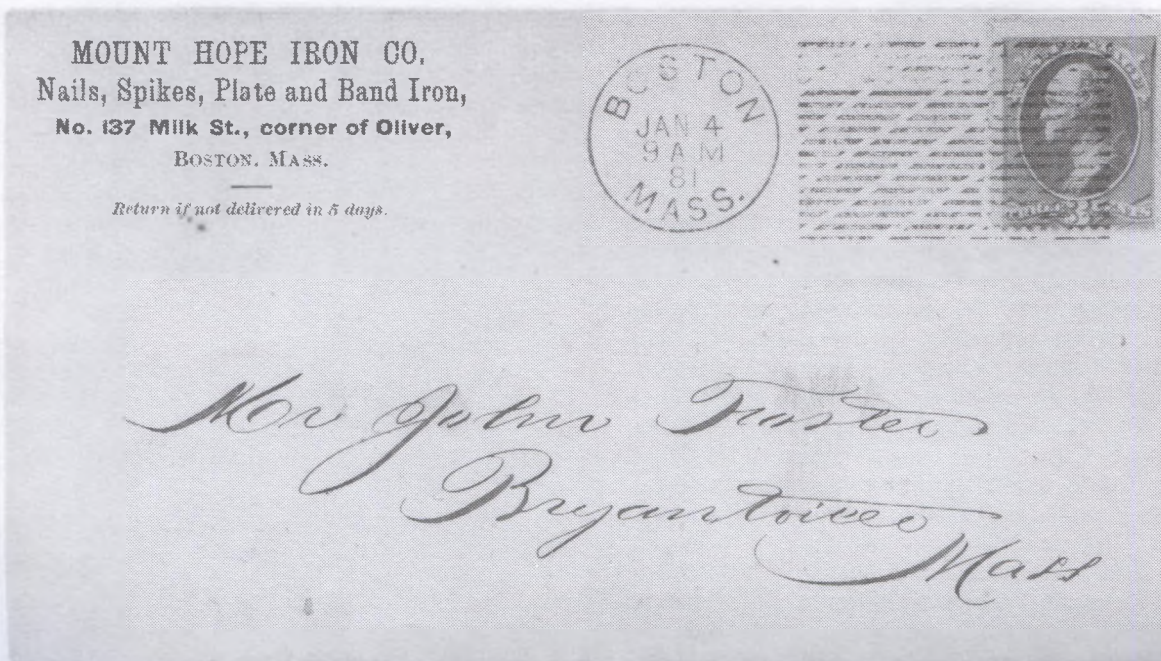 MOUNT HOPE IRON CO.
Nails, Spikes, Plate and Band Iron,
No. 137 Milk St., corner of Oliver,
BOSTON. MASS.
Return if not delivered in 5 days.
BOSTON
JAN 4
9 AM
81
MASS.
Mr John Foster
Bryantville
Mass